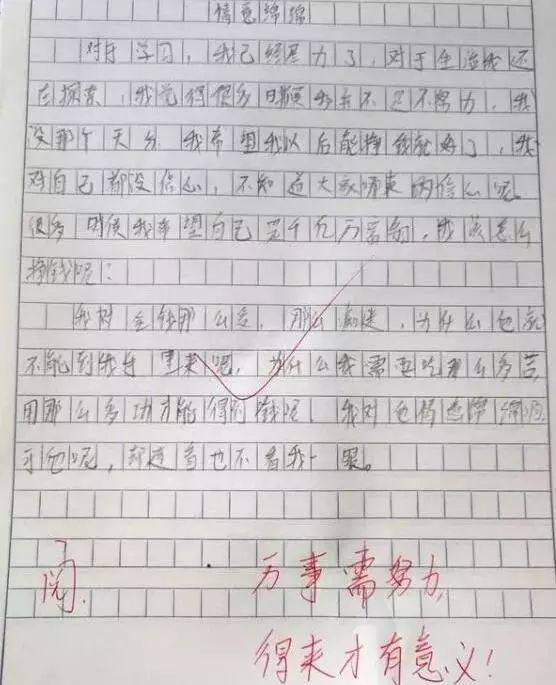 情意绵绵
对于学习，我已经尽力了，对于生活我还
在探索，我觉得很多时候我并不是不努力，我
没那个天分 我希望我以后能挣钱就好了，我
对自己都没信心，不知道大家哪来的信心呢。
很多时候我希望自己是千万富翁，我该怎么
挣钱呢？
我对金钱那么爱，那么痴迷，为什么他就
不能到我手里来呢，为什么我需要吃那么多苦
用那么多功才能得到钱呢，我对他情意绵绵
可他呢，却连看也不看我一眼。
阅.
万事需努力,
得来才有意义!